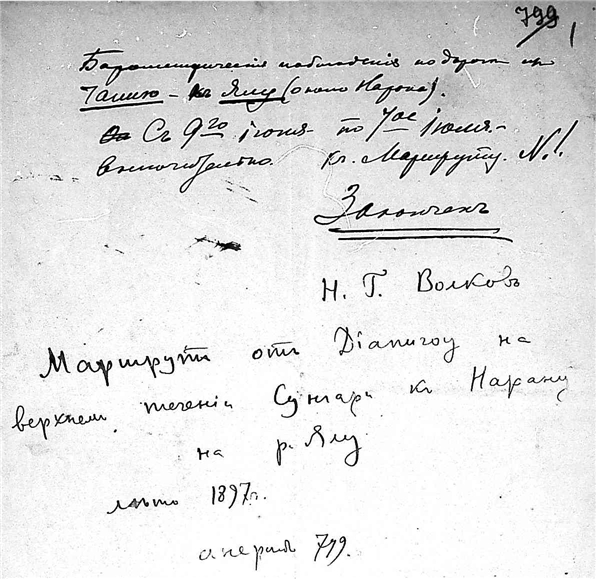 799 1
Барометрическія наблюденія по дорогѣ
къ Ялу (около Нарана).
Съ 9го іюня по 7ое іюля
включительно. Къ Маршруту N.1.
Законченъ
Н. Г. Волковъ
Маршрутъ отъ на
верхнем теченіи Сунгари къ Нарану
на р. Ялу
лѣто 1897г.
799.